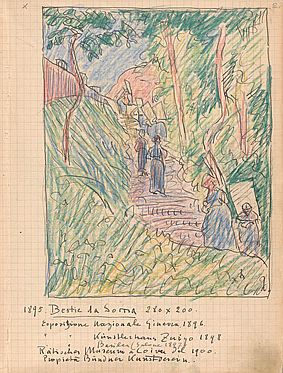 1895. Bestie da Soma 280 x 200.
Esposizione Nazionale Ginevra 1896.
" Künstlerhaus Zurigo 1898
Rätisches Museum a Coira dal 1900.
Proprietà Bündner Kunstverein.